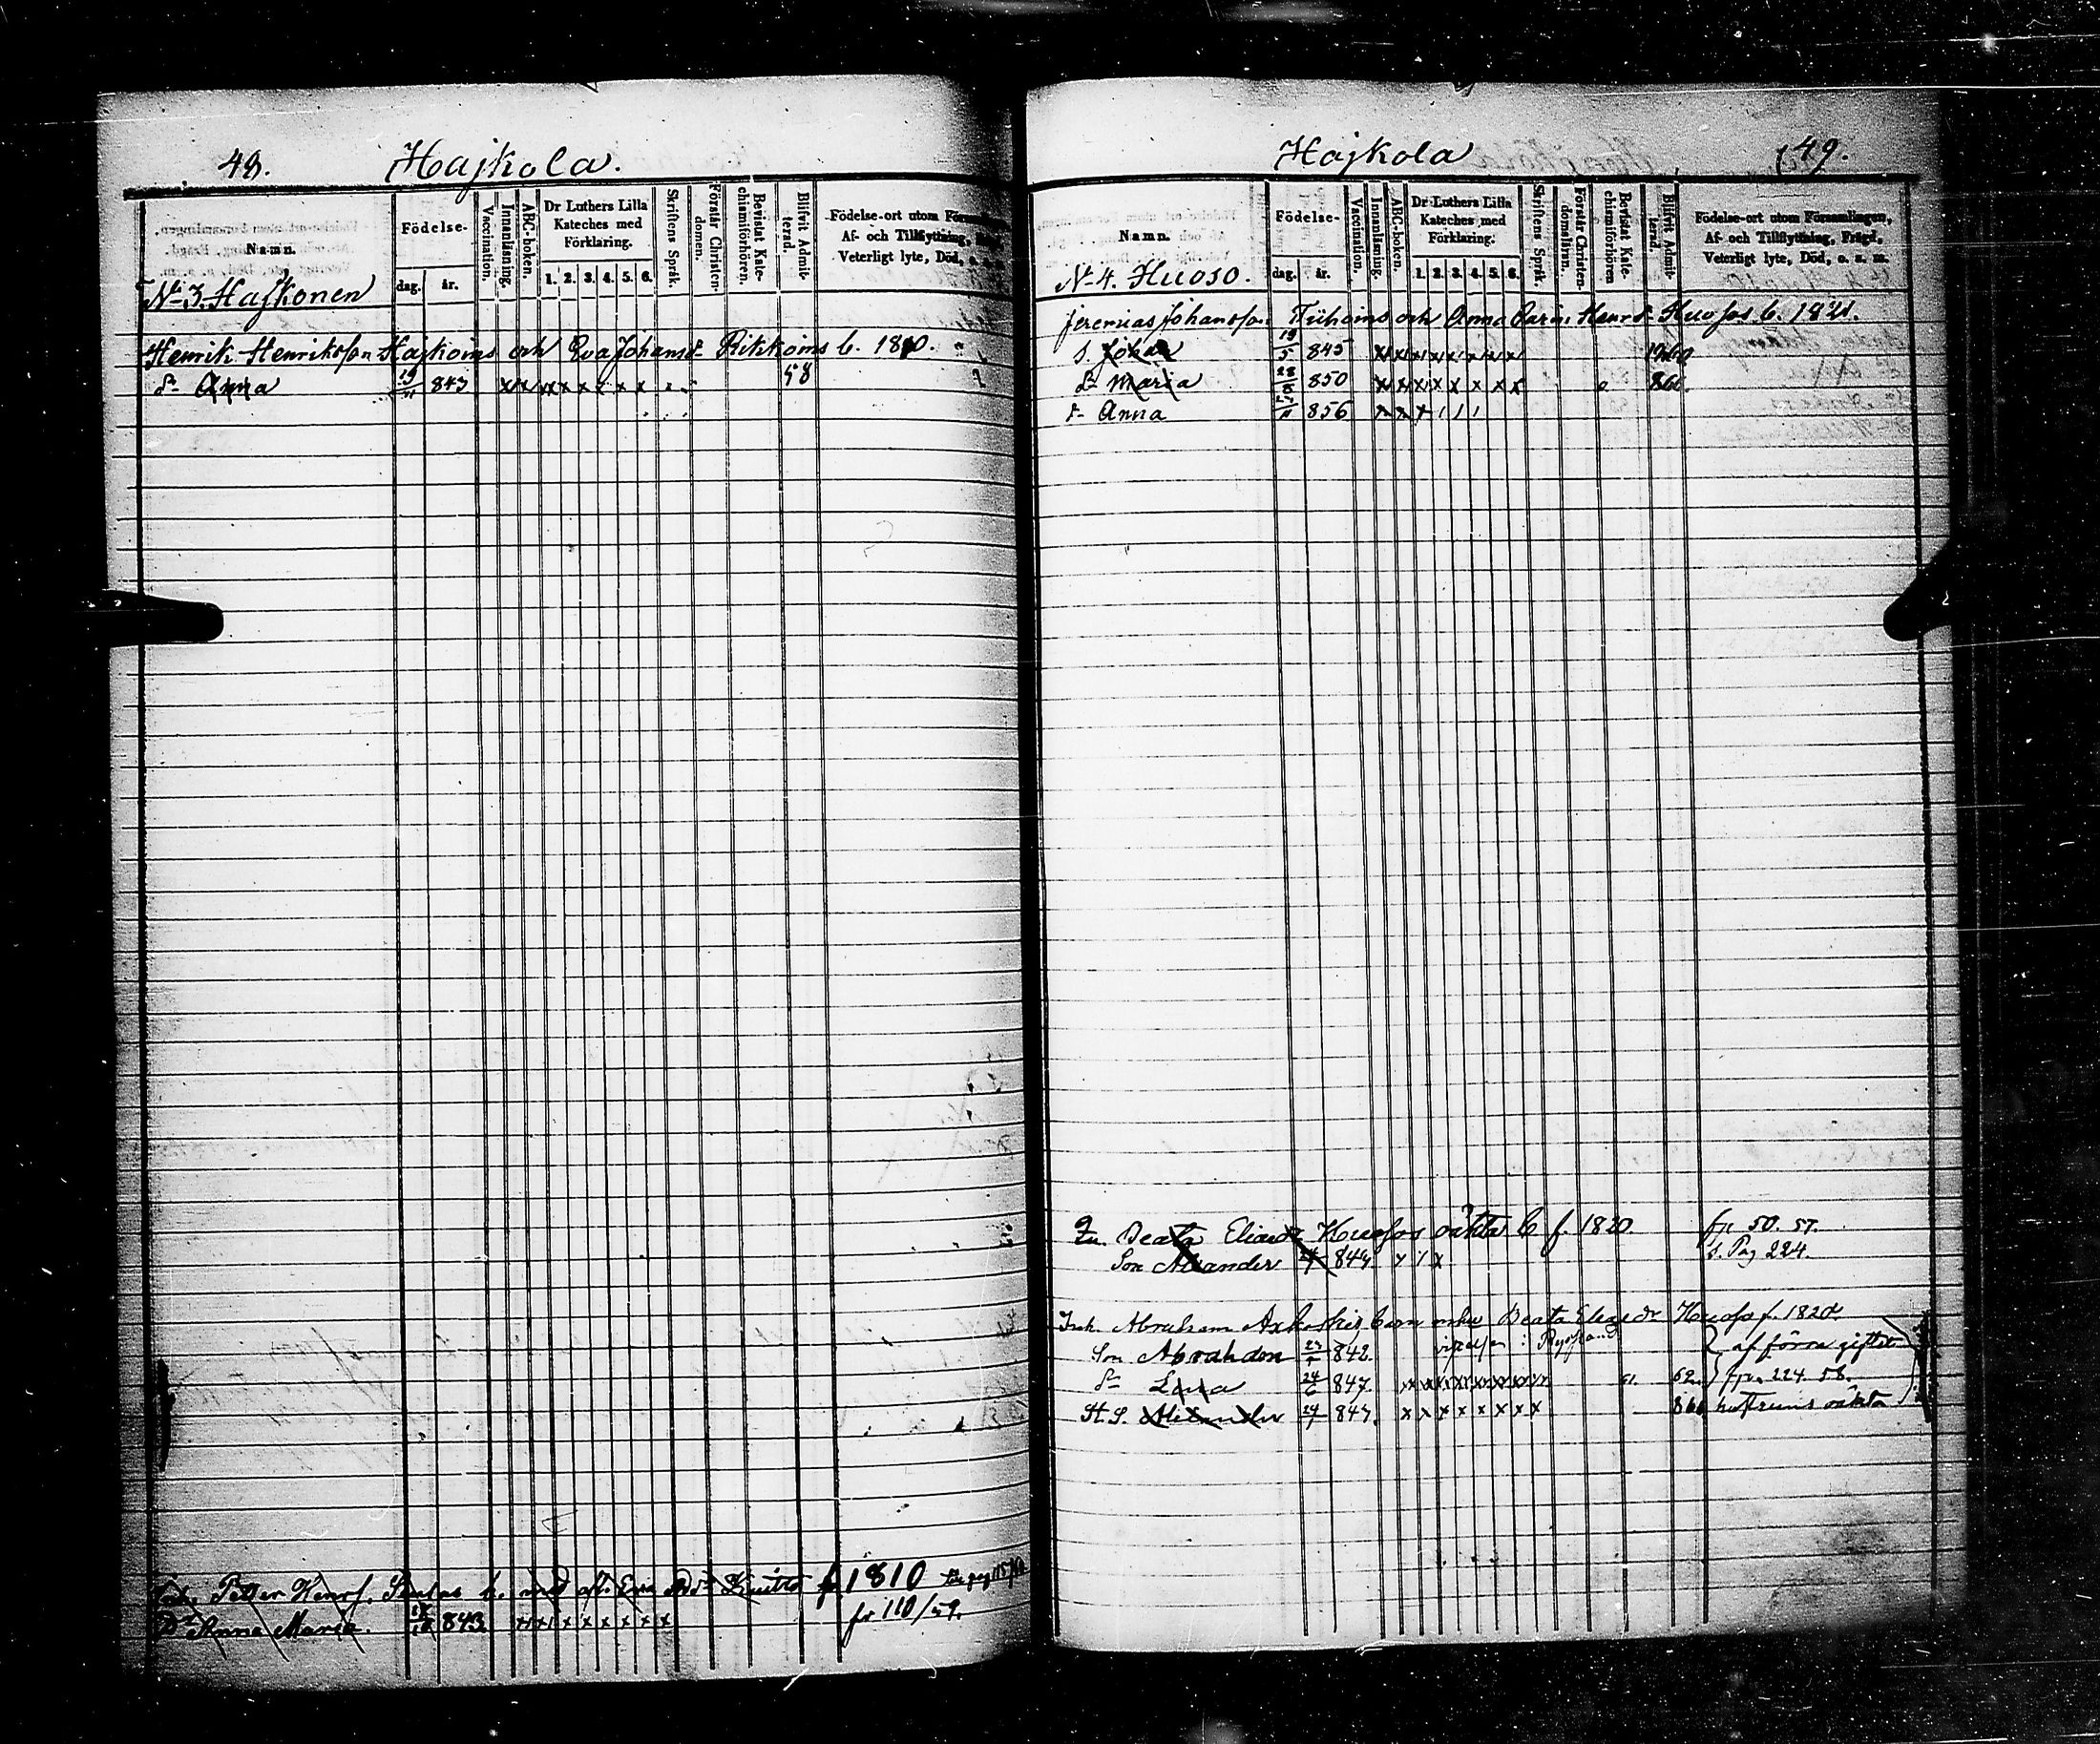 48. Hajkola.
Namn. Födelse- dag. år. Vaccination. Innanläsning. ABC-boken. Dr Luthers Lilla Kateches med Förklaring. 1. 2. 3. 4. 5. 6. Skriftens Språk. Förstår Christendomen. Bevistat Katechismiförhören. Blifvit Admitterad. Födelse-ort utom Af- och Tillflyttning, Veterligt lyte, Död,
No 3. Hajkonen
Henrik Henriksson Hajkoins och Eva Johansd. Rikkoins b. 1810.
dr Anna 19/11 843 x x x x x x x x 58
Petter Henrs. b. med f 1810
Dr Anna Maria. 843 x x x x x x x x fr 110/59.
Hajkola 49.
Namn. Födelse- dag. år. Vaccination. Innanläsning. ABC-boken. Dr Luthers Lilla Kateches med Förklaring. 1. 2. 3. 4. 5. 6. Skriftens Språk. Förstår Christendomsläran. Bevistat Katechismiförhören Blifvit Admitterad. Födelse-ort utom Församlingen, Af- och Tillflyttning, Frägd, Veterligt lyte, Död, o. s. m.
No 4. Huoso.
Jeremias Johansson Tiihoins och Anna Carin Henrsdr Huosos b. 1821.
s. Johan 19/5 845 x x x x x x x x 1860
dr Maria 28/8 850 x x x x x x x x 866.
dr Anna /11 856 x x x / / /
Beata Eliasdr Huosos oäkta b f. 1820. fr 50. 57.
Son Alxander 24/7 847. x / x s. Pag 224.
Inh. Abraham barn enka Beata Eliasdr Huoso f. 1820.
Son Abrahdon 842. vistelsen i Ryssland af förra giftet
dr Lena 24/6 847. x x x x x x x x 62. från 224. 58.
St. S. Alexander 24/7 847. x x x x x x x x 866 hustruns oäkta